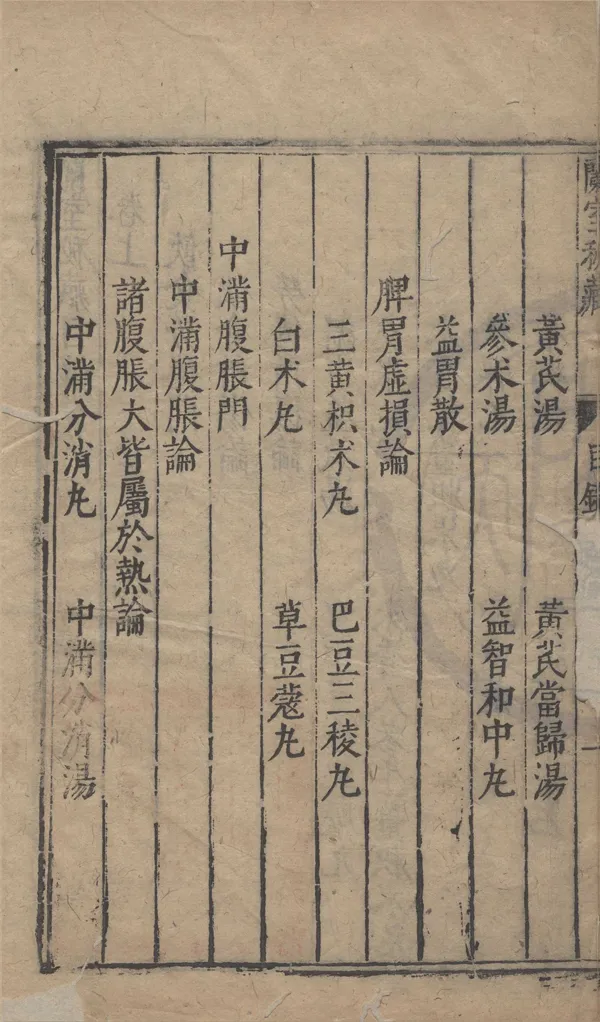 蘭室秘藏 目錄 一
黃芪湯 黃芪當歸湯
參术湯 益智和中丸
益胃散
脾胃虛損論
三黃枳术丸 巴豆三稜丸
白术丸 草豆蔻丸
中滿腹脹門
中滿腹脹論
諸腹脹大皆屬於熱論
中滿分消丸 中滿分消湯